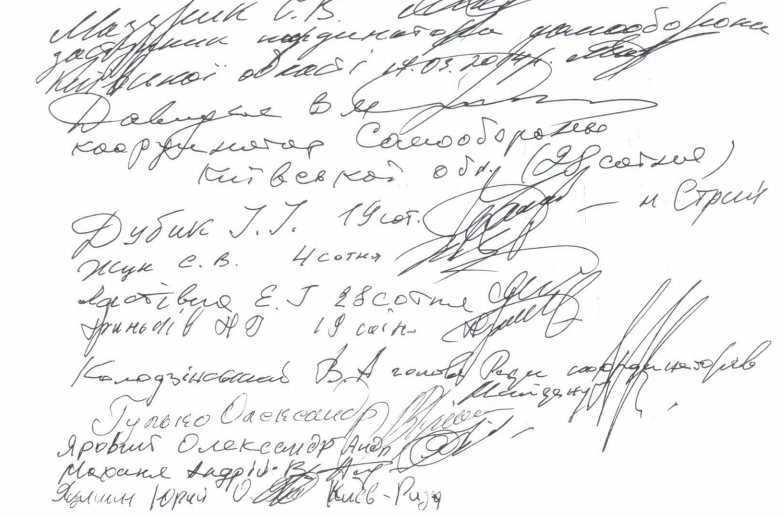 Мазурик С.В.
заступник координатора самооборони
Київської області 17.03.2014р.
Давидюк В М
координатор Самооборони
Київської обл (28 сотня)
Дубик І.І. 19 сот. — м Стрий
Жук С.В. 4 сотня
Е.Г 28 сотня
19 сотн
Колодзінський В.А голова Ради координаторів
Майдану
Гулько Олександр
Яровий Олександр Андр
Андрій В
Юрий О. Київ-Рада